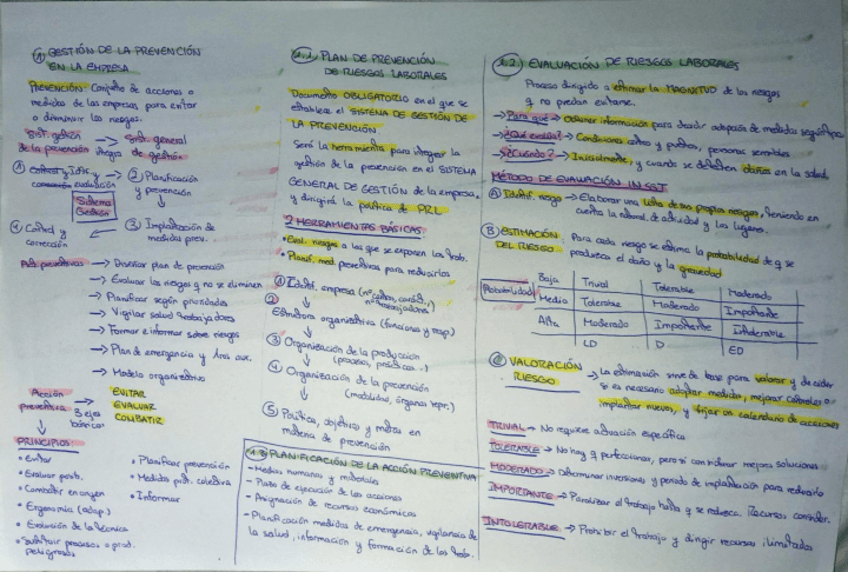 1) GESTIÓN DE LA PREVENCIÓN
EN LA EMPRESA
PREVENCIÓN: Conjunto de acciones o
medidas de las empresas para evitar
o disminuir los riesgos.
Sist. gestión → Sist. general
de la prevención integra de gestión.
① Control y Identif. y evaluación → ② Planificación
y prevención
Sistema
Gestión
④ Control y
corrección ← ③ Implantación de
medidas prev.
Act. preventivas → Diseñar plan de prevención
→ Evaluar los riesgos q no se eliminen
→ Planificar según prioridades
→ Vigilar salud trabajadores
→ Formar e informar sobre riesgos
→ Plan de emergencia y
→ Modelo organizativo
Acción
preventiva → 3 ejes
básicos
EVITAR
EVALUAR
COMBATIR
PRINCIPIOS:
• Evitar
• Evaluar
• Combatir en origen
• Ergonomía (adap.)
• Evolución de la técnica
• Sustituir procesos o prod.
peligrosos
• Planificar prevención
• Medidas prot. colectiva
• Informar
1.1. PLAN DE PREVENCIÓN
DE RIESGOS LABORALES
Documento OBLIGATORIO en el que se
establece el SISTEMA DE GESTIÓN DE
LA PREVENCIÓN.
Será la herramienta para integrar la
gestión de la prevención en el SISTEMA
GENERAL DE GESTIÓN de la empresa,
y dirigirá la política de PRL
2 HERRAMIENTAS BÁSICAS:
• Eval. riesgos a los que se exponen los trab.
• Planif. med. preventivas para reducirlos
① Identif. empresa (nº centros,
nº trabajadores)
②
Estructura organizativa (funciones y resp.)
③ Organización de la producción
(procesos, prácticas...)
④ Organización de la prevención
(modalidad, órganos repr.)
⑤ Política, objetivos y metas en
materia de prevención
1.3 PLANIFICACIÓN DE LA ACCIÓN PREVENTIVA
- Medios humanos y materiales
- Plazo de ejecución de las acciones
- Asignación de recursos económicos
- Planificación medidas de emergencia, vigilancia de
la salud, información y formación de los trab.
1.2. EVALUACIÓN DE RIESGOS LABORALES
Proceso dirigido a estimar la MAGNITUD de los riesgos
q no puedan evitarse.
→ Para qué → Obtener información para decidir adopción de medidas
→ ¿Qué evalúa? → Condiciones y puestos, personas sensibles
→ ¿Cuándo? → Inicialmente, y cuando se detecten daños en la salud
MÉTODO DE EVALUACIÓN INSST
Ⓐ Identif. riesgo → Elaborar una lista de sus propios riesgos, teniendo en
cuenta la natural. de actividad y los lugares.
Ⓑ ESTIMACIÓN
DEL RIESGO
: Para cada riesgo se estima la probabilidad de q se
produzca el daño y la gravedad
Probabilidad
Baja Trivial Tolerable Moderado
Media Tolerable Moderado Importante
Alta Moderado Importante Intolerable
LD D ED
Ⓒ VALORACIÓN
RIESGO
→ La estimación sirve de base para valorar y decidir
si es necesario adoptar medidas, mejorar controles o
implantar nuevos, y fijar un calendario de acciones
TRIVIAL → No requiere actuación específica
TOLERABLE → No hay q perfeccionar, pero sí considerar mejores soluciones
MODERADO → Determinar inversiones y periodo de implantación para reducirlo
IMPORTANTE → Paralizar el trabajo hasta q se reduzca. Recursos consider.
INTOLERABLE → Prohibir el trabajo y dirigir recursos ilimitados